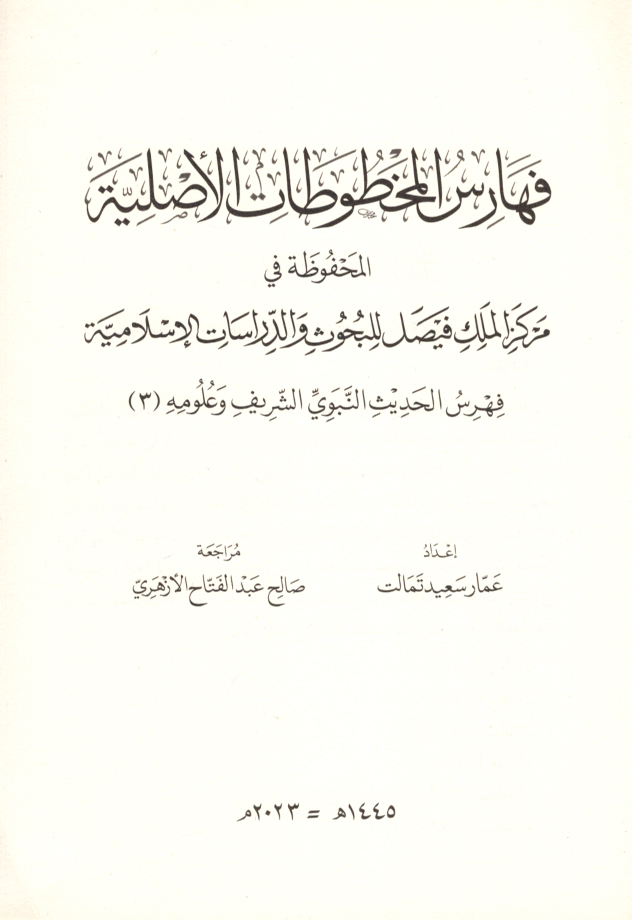 فَهَارِسُ المَخْطُوطَاتِ الأَصْلِيَّةِ
المَحْفُوظَة فِي
مَركَزِ المَلَكِ فَيْصَل لِلبُحُوثِ وَالدِّرَاسَاتِ الإِسْلَامِيَّة
فِهْرِسُ الحَدِيْثِ النَّبَوِيِّ الشَّرِيفِ وَعُلُومِهِ (٣)
إعْدَادُ
عَمَّار سَعِيد تَمَالت
مُرَاجَعَة
صَالِح عَبْد الفَتَّاح الأَزْهَرِيّ
١٤٤٥هـ = ٢٠٢٣م